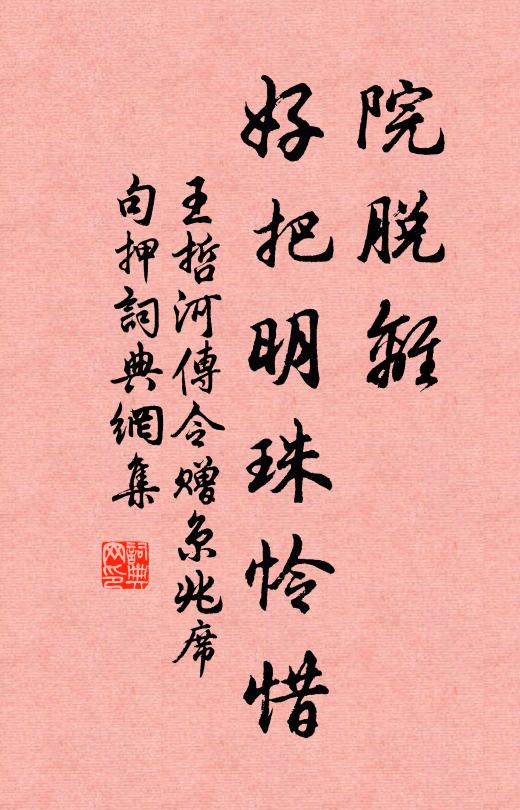 院脱離
好把明珠怜惜
王哲河傳令赠京兆席
句押詞典網集
詞典
网印